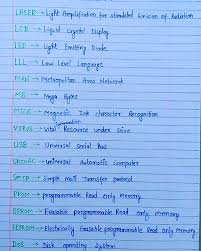 LASER → Light Amplification for Stimulated Emission of Radiation
LCD → Liquid Crystal Display
LED → Light Emitting Diode
LLL → Low Level Language
MAN → Metropolitan Area Network
MB → Mega Bytes
MICR → Magnetic Ink character Recognition
Information
VIRUS → Vital Resource under Seize
USB → Universal Serial Bus
UNIVAC → universal Automatic Computer
SMTP → Simple Mail Transfer protocol
PROM → programmable Read only memory
EPROM → Erasable programmable Read only memory
EEPROM → Electrically Erasable programmable Read only memory
DOS → Disk operating System